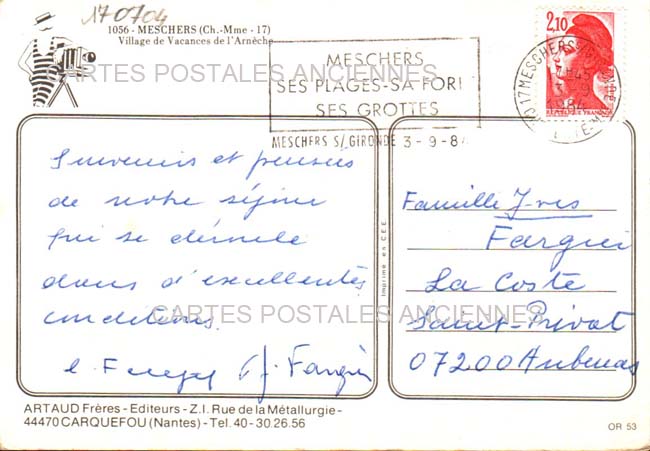 170704
1056 - MESCHERS (Ch.-Mme - 17)
Village de Vacances de l'Arnèche
CARTES POSTALES ANCIENNES
MESCHERS
SES PLAGES-SA FORÊ
SES GROTTES
MESCHERS S/GIRONDE 3-9-84
2,10
REPUBLIQUE FRANÇAISE
17 MESCHERS
1984
Souvenirs et pensées
de notre séjour
qui se déroule
dans d'excellentes
conditions.
Fargier
Famille Yves
Fargier
La Coste
Saint-Privat
07200 Aubenas
Imprimé en C.E.E.
CARTES POSTALES ANCIENNES
ARTAUD Frères - Editeurs - Z.I. Rue de la Métallurgie -
44470 CARQUEFOU (Nantes) - Tel. 40-30.26.56
OR 53